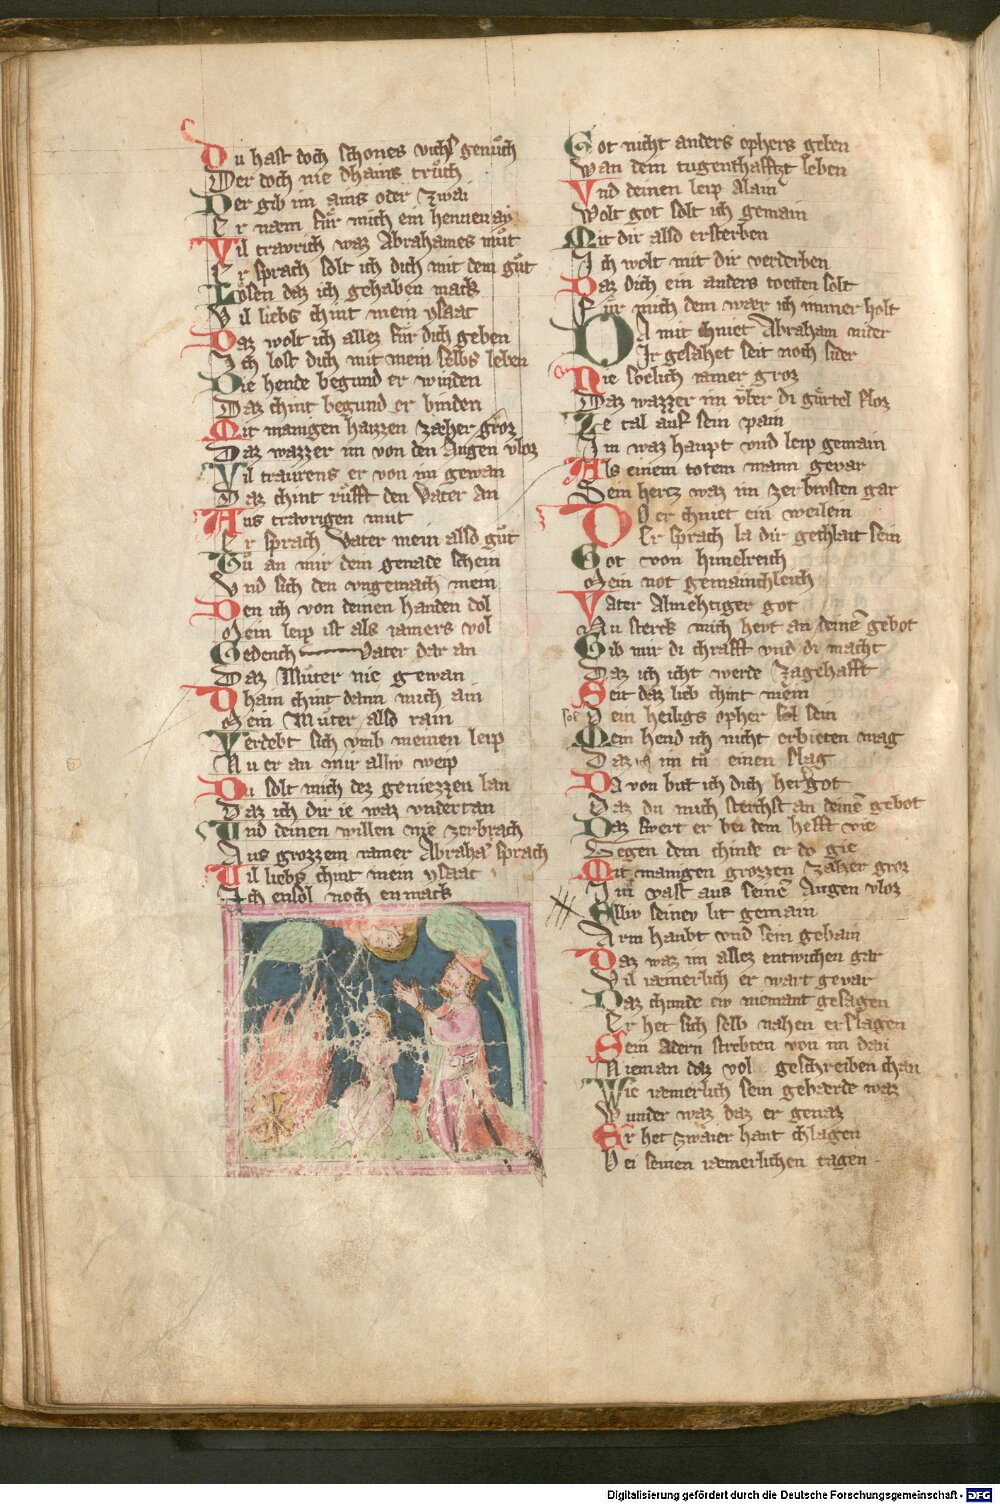 Du hast doch schones vichs genůch
Der doch nie dhains trůch
Der gib im ains oder zwai
Er næm fůr mich ein hennen ay
Vil travrich waz Abrahames můt
Er sprach solt ich dich mit dem gůt
Lösen daz ich gehaben mack
Vil liebs chint mein ysaac
Daz wolt ich allez fůr dich geben
Ich lost dich mit mein selbs leben
Die hende begund er winden
Daz chint begund er binden
Mit manigen haizzen zæher groz
Daz wazzer im von den Augen vloz
Vil traurens er von im gewan
Daz chint růfft den Vater an
Aus travrigen mut
Er sprach Vater mein also gůt
Tů an mir dem genade schein
Vnd sich den vngemach mein
Den ich von deinen handen dol
Mein leip ist als iamers vol
Gedench Vater dar an
Daz Můter nie gewan
Dhain chint dann mich ain
Mein Můter also rain
Verdebt sich vmb meinen leip
Nu er an mir alliv weip
Du solt mich dez geniezzen lan
Daz ich dir ie waz vndertan
Vnd deinen willen nie zerbrach
Aus grozzem iamer Abrahā sprach
Vil liebs chint mein ysaac
Ich ensol noch en mack
Got nicht anders ophers geben
Wan dem tugenthafftzt leben
Vnd deinen leip Alain
Wolt got solt ich gemain
Mit dir also ersterben
Ich wolt mit dir verderben
Daz dich ein anders toeten solt
Fůr mich dem wær ich immer holt
DA mit chniet Abraham nider
Ir gesahet seit noch sider
Nie soelich iamer groz
Daz wazzer im vber di gůrtel floz
Ze tal auf sein pain
Im waz haupt vnd leip gemain
Als einem totem mann gevar
Sein hertz waz im zerbrosten gar
DO er chniet ein weilein
Er sprach la dir gechlait sein
Got von himelreich
Mein not gemainchleich
Vater Almehtiger got
Nu sterck mich hevt an deinē gebot
Gib mir di chrafft vnd di macht
Daz ich icht werde zagehafft
Seit daz lieb chint mein
Dein heiligs opher sol sein
Mein hend ich nicht erbieten mag
Daz ich im tů einen slag
Da von bitt ich dich her got
Daz du mich sterchst an deinē gebot
Daz swert er bei dem hefft vie
Gegen dem chinde er do gie
Mit manigen grozzen zæher groz
Im vast aus seinē Augen vloz
Elliv seinev lit gemain
Arm haubt vnd sein gebain
Daz waz im allez entwichen gar
Vil iæmerlich er wart gevar
Daz chunde ew niemant gesagen
Er het sich selb nahen erslagen
Sein Adern strebten von im dan
Nieman daz vol geschreiben chan
Wie iæmerlich sein gebærde waz
Wunder waz daz er genaz
Er het zwaier hant chlagen
Bei seinen iæmerlichen tagen
Digitalisierung gefördert durch die Deutsche Forschungsgemeinschaft - DFG